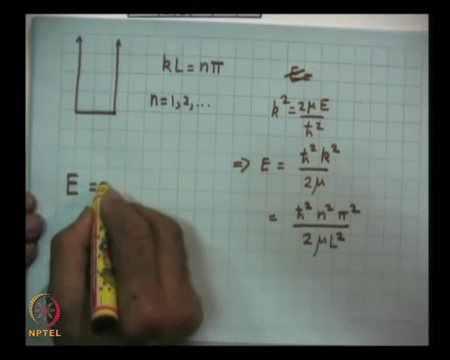 kL = nπ
n = 1, 2, ...
k² = 2μE / ħ²
⇒ E = ħ²k² / 2μ
= ħ²n²π² / 2μL²
E =
NPTEL